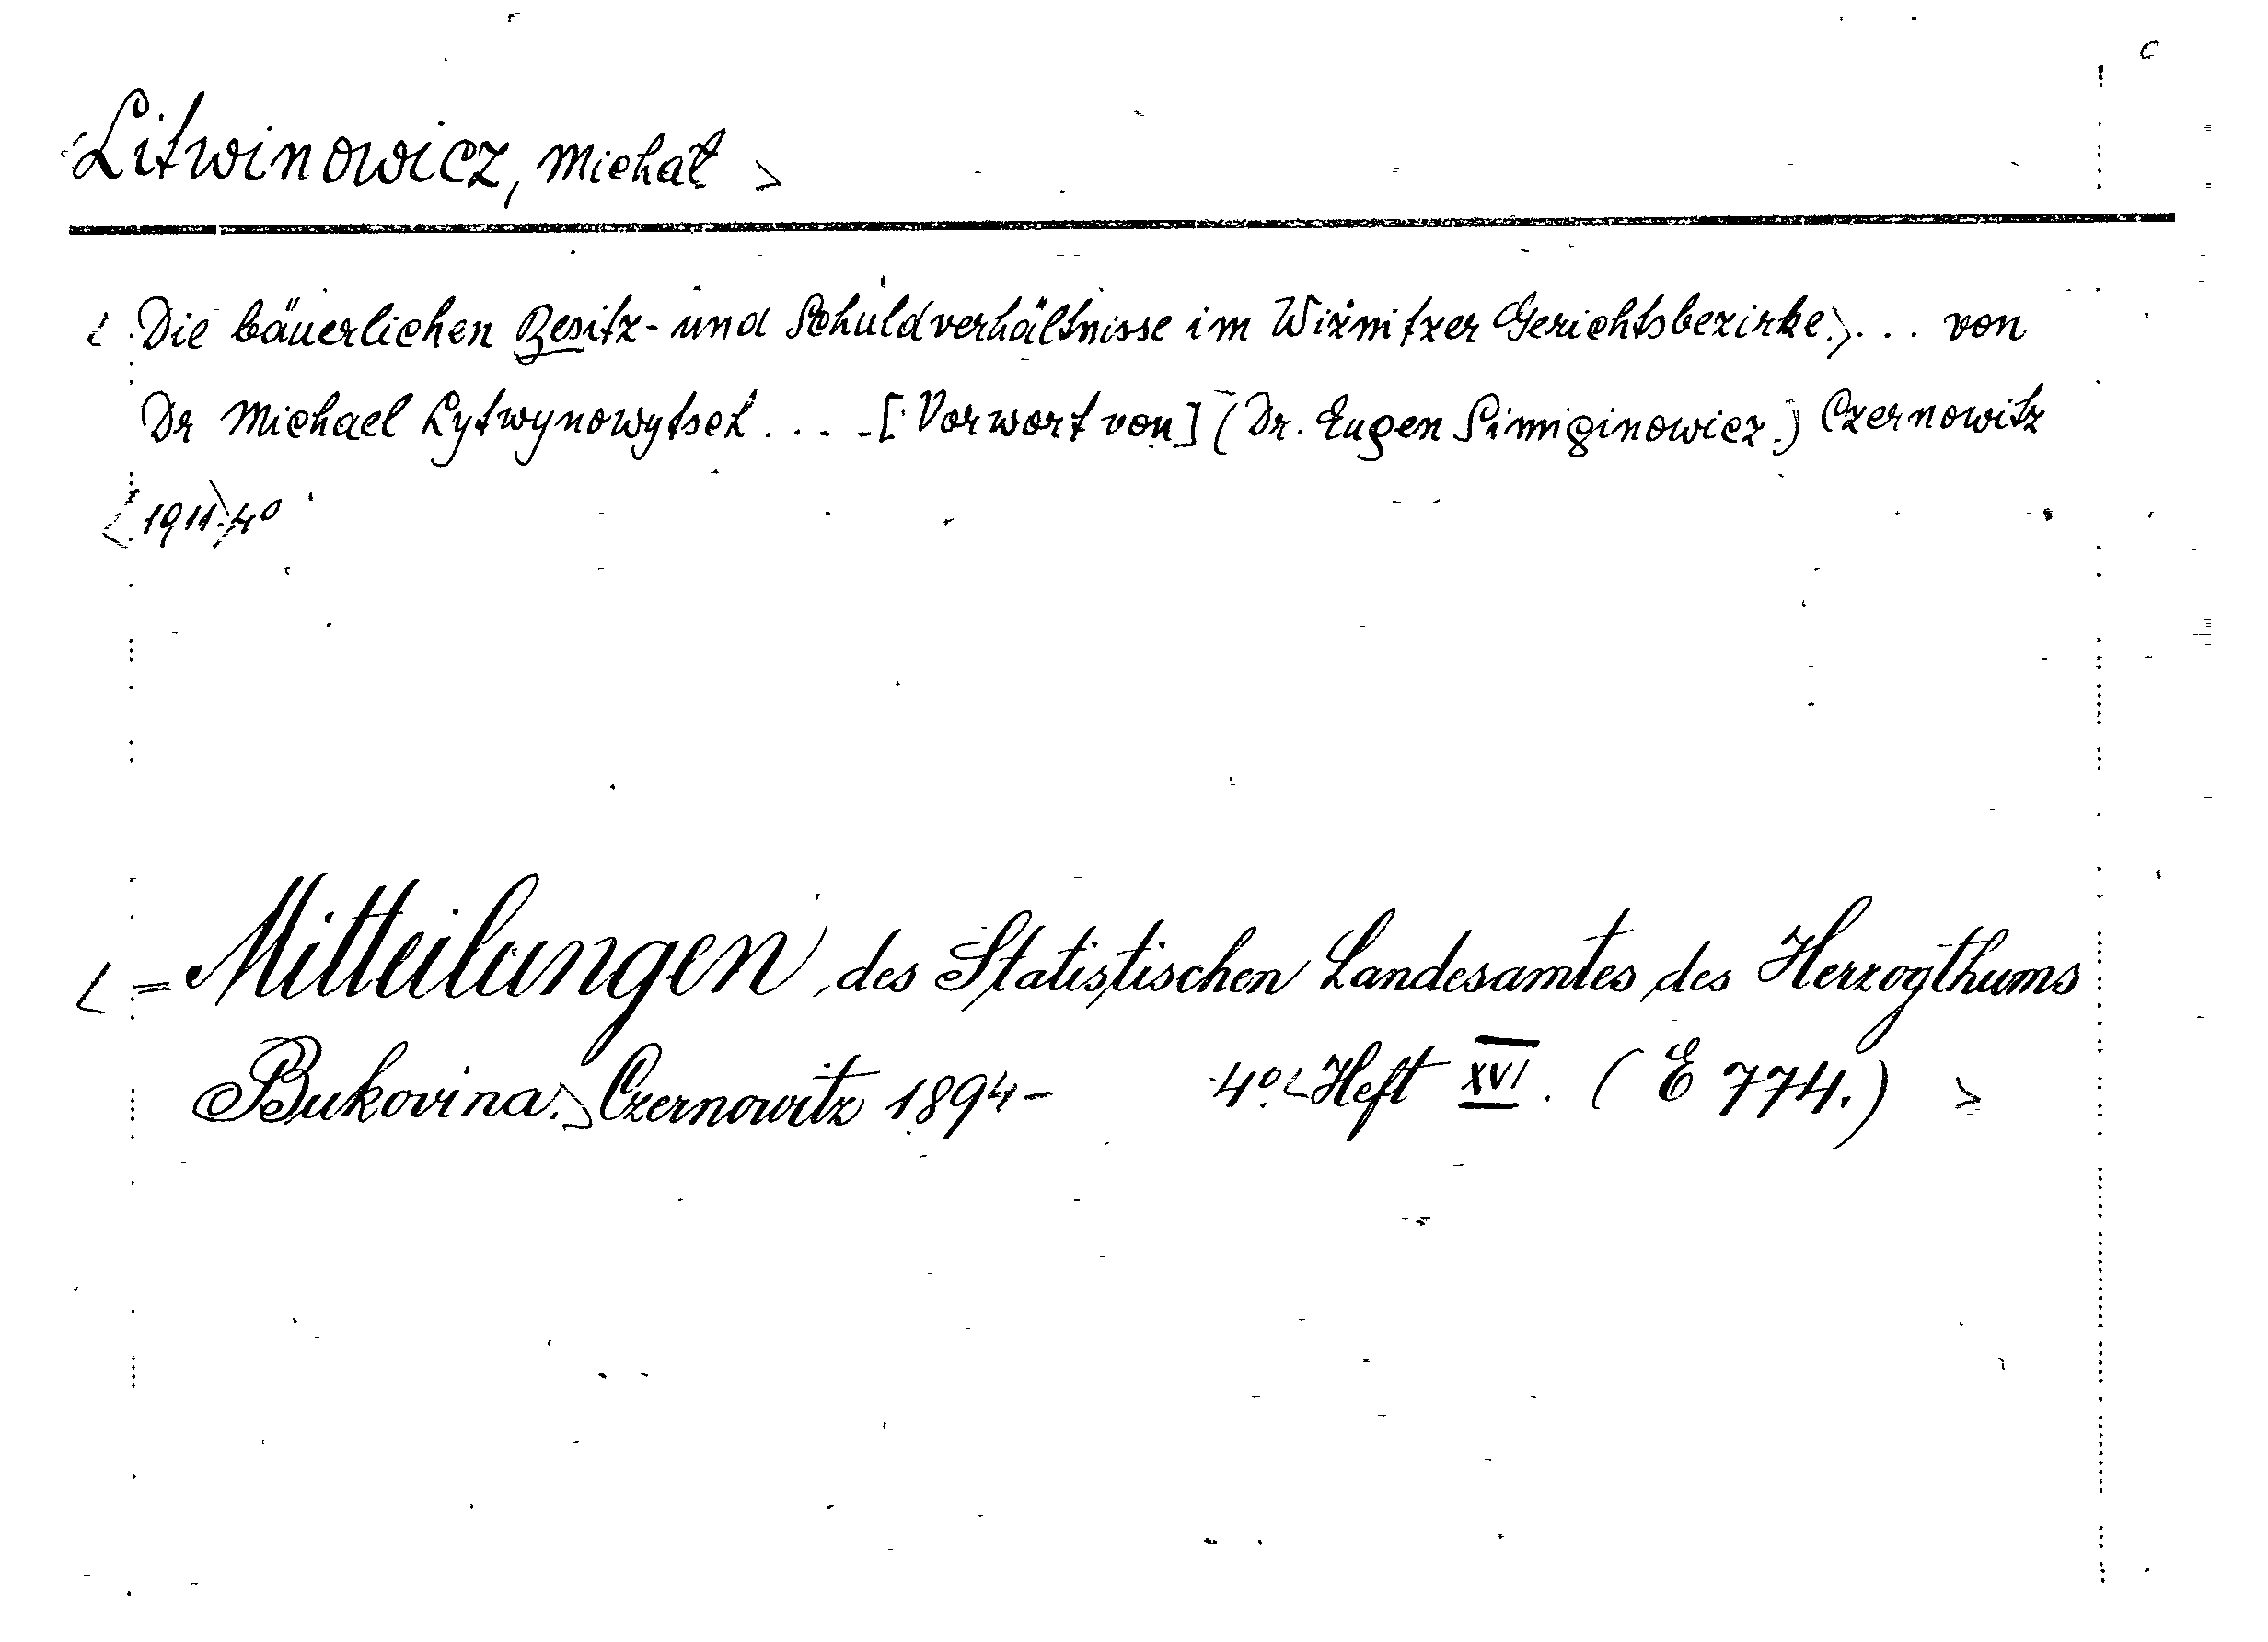 <Litwinowicz, Michał>
<Die bäuerlichen Besitz- und Schuldverhältnisse im Wižnitzer Gerichtsbezirke.> ... von
Dr Michael Lytwynowytsch .... [Vorwort von] (Dr. Eugen Simiginowicz.) Czernowitz
<1911.> 4º
<= Mitteilungen des Statistischen Landesamtes des Herzogthums
Bukovina.> Czernowitz 1894- 4º. <Heft XVI. (E 774.)>